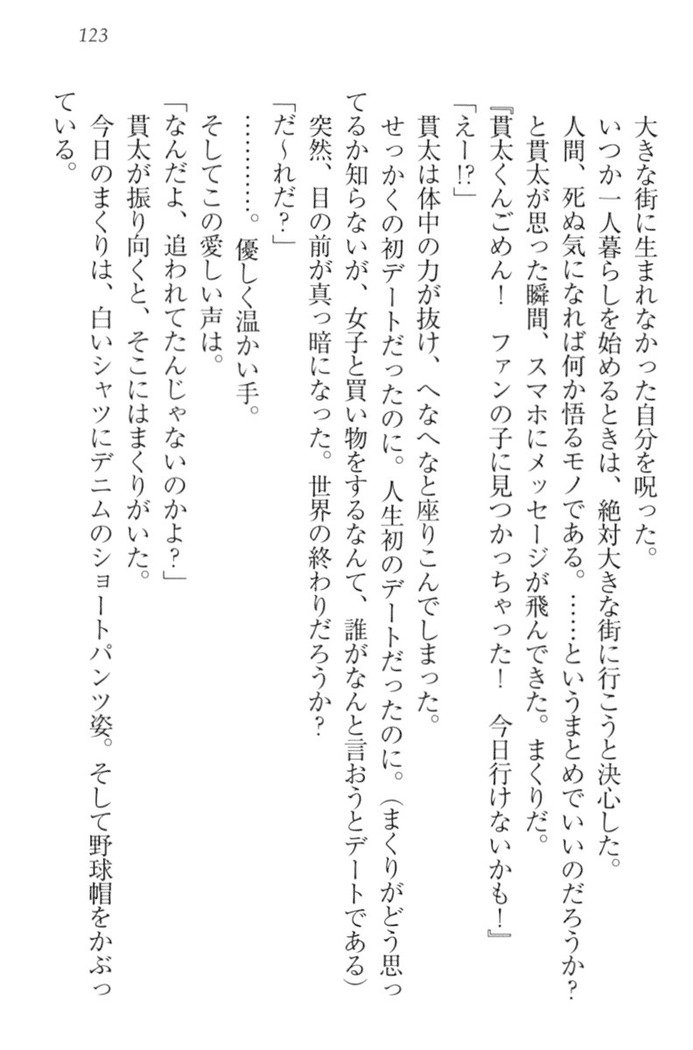 123
大きな街に生まれなかった自分を呪った。
いつか一人暮らしを始めるときは、絶対大きな街に行こうと決心した。
人間、死ぬ気になれば何か悟るモノである。……というまとめでいいのだろうか?
と貫太が思った瞬間、スマホにメッセージが飛んできた。まくりだ。
『貫太くんごめん! ファンの子に見つかっちゃった! 今日行けないかも!』
「えー!?」
貫太は体中の力が抜け、へなへなと座りこんでしまった。
せっかくの初デートだったのに。人生初のデートだったのに。(まくりがどう思っ
てるか知らないが、女子と買い物をするなんて、誰がなんと言おうとデートである)
突然、目の前が真っ暗になった。世界の終わりだろうか?
「だ~れだ?」
…………。優しく温かい手。
そしてこの愛しい声は。
「なんだよ、追われてたんじゃないのかよ?」
貫太が振り向くと、そこにはまくりがいた。
今日のまくりは、白いシャツにデニムのショートパンツ姿。そして野球帽をかぶっ
ている。